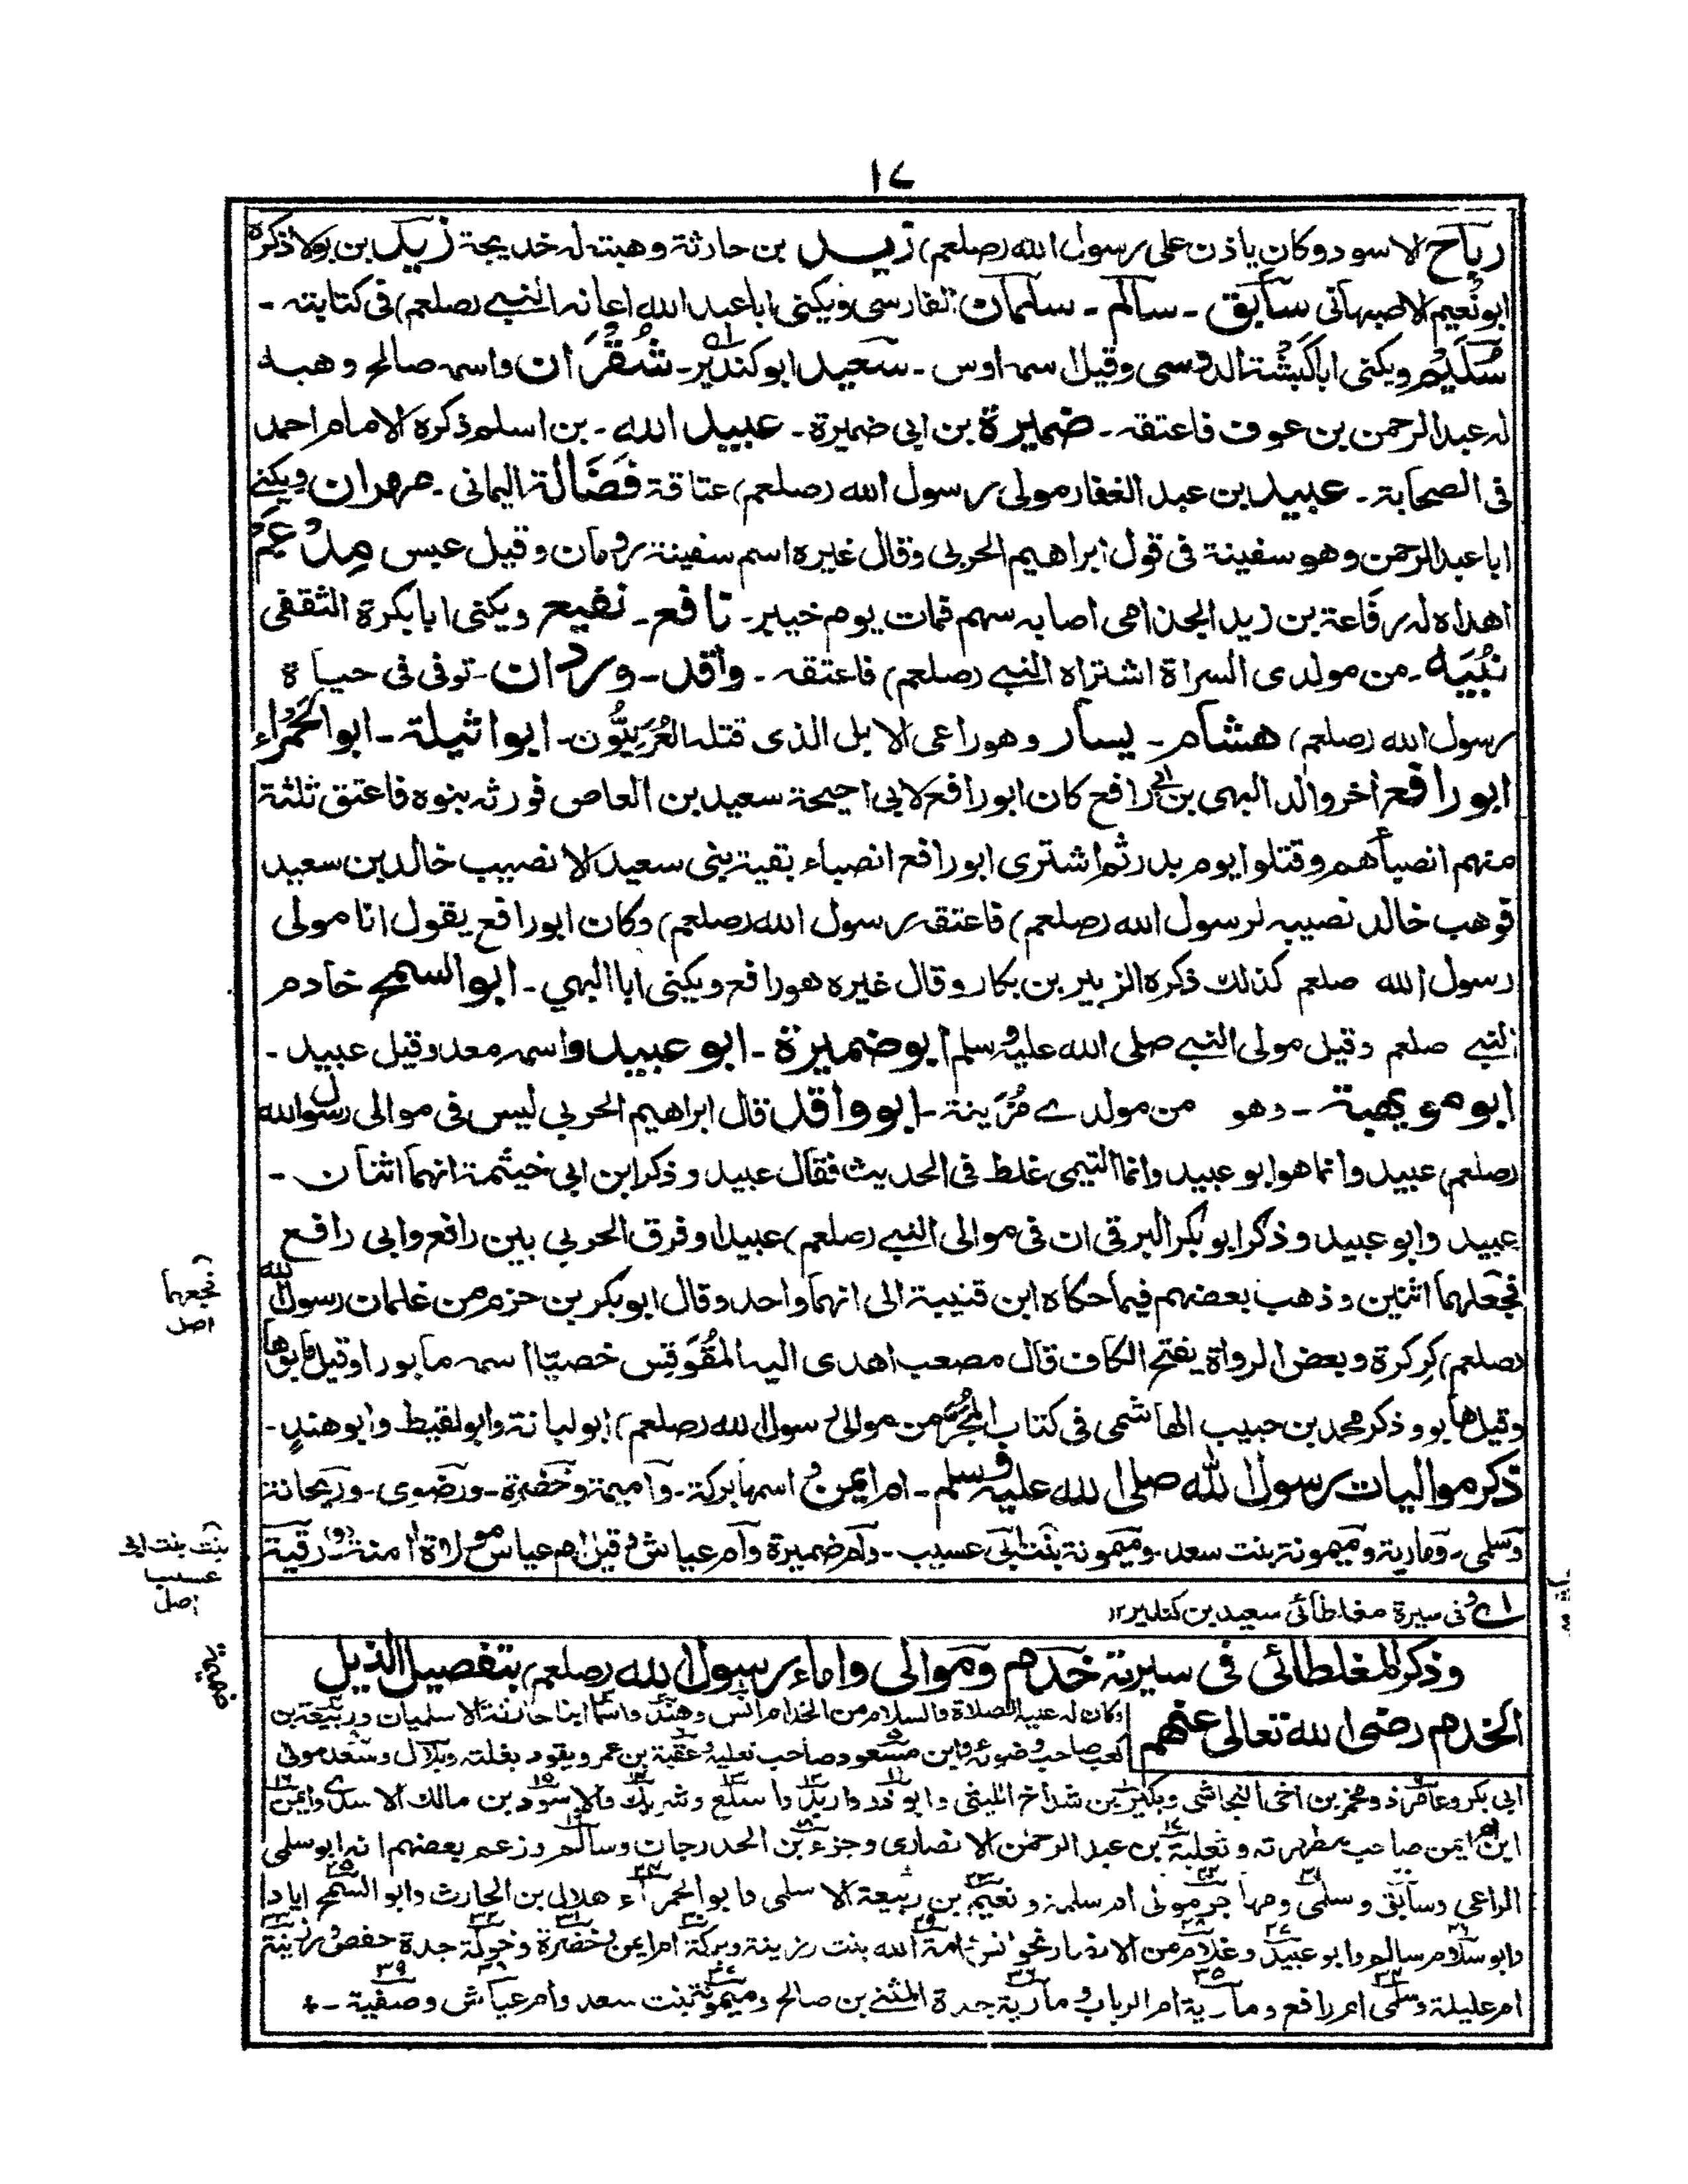 ١٧
رباح الاسود وكان ياذن على رسول الله (صلعم) زيد بن حارثة وهبته له خديجة زيد بن بولا ذكره
ابو نُعيم الاصبهانى سابق - سالم - سلمان الفارسى ويكنى ابا عبد الله اعانه النبي (صلعم) فى كتابته -
سُلَيْم ويكنى ابا كَبْشة الدوسى وقيل اسمه اوس - سعيد ابو كندير - شُقْرَان واسمه صالح وهبه
له عبد الرحمن بن عوف فاعتقه - ضميرة بن ابى ضميرة - عبيد الله - بن اسلم ذكره الامام احمد
فى الصحابة - عبيد بن عبد الغفار مولى رسول الله (صلعم) عتاقة فَضَالة اليمانى - مهران ويكنى
ابا عبد الرحمن وهو سفينة فى قول ابراهيم الحربى وقال غيره اسم سفينة رومان وقيل عبس مِدْعَم
اهداه له رفاعة بن زيد الجذامى اصابه سهم فمات يوم خيبر - نافع - نفيع ويكنى ابا بكرة الثقفى
نُبَيه - من مولدى السراة اشتراه النبي (صلعم) فاعتقه - واقد - وردان - توفى فى حياة
رسول الله (صلعم) هشام - يسار وهو راعى الابل الذى قتله العُرَنِيُّون - ابو اثيلة - ابو الحَمْراء
ابو رافع اخر والد البهى بن ابى رافع كان ابو رافع لابى احيحة سعيد بن العاص فورثه بنوه فاعتق ثلثة
منهم انصباءهم وقتلوا يوم بدر ثم اشترى ابو رافع انصباء بقية بنى سعيد الا نصيب خالد بن سعيد
فوهب خالد نصيبه لرسول الله (صلعم) فاعتقه رسول الله (صلعم) وكان ابو رافع يقول انا مولى
رسول الله صلعم كذلك ذكره الزبير بن بكار وقال غيره هو رافع ويكنى ابا البهي - ابو السمح خادم
النبي صلعم وقيل مولى النبي صلى الله عليه وسلم ابو ضميرة - ابو عبيد واسمه معد وقيل عبيد -
ابو مويهبة - وهو من مولدے مُزَينة - ابو واقد قال ابراهيم الحربي ليس فى موالى رسول الله
(صلعم) عبيد وانما هو ابو عبيد وانما التيمى غلط فى الحديث فقال عبيد وذكر ابن ابي خيثمة انهما اثنان -
عبيد وابو عبيد وذكر ابو بكر البرقى ان فى موالى النبي (صلعم) عبيدا وفرق الحربي بين رافع وابى رافع
فجعلهما اثنين وذهب بعضهم فيما حكاه ابن قتيبة الى انهما واحد وقال ابو بكر بن حزم من غلمان رسول الله
(صلعم) كِركرة وبعض الرواة يفتح الكاف قال مصعب اهدى اليه المُقَوقِس خصيّا اسمه مابورا وقيل مابوها
وقيل هابو وذكر محمد بن حبيب الهاشمى فى كتاب المُحَبَّر من موالى رسول الله (صلعم) ابو لبانة وابو لقيط وابو هندٍ -
ذكر مواليات رسول الله صلى الله عليه وسلم - ام ايمن اسمها بركة - واميمة وخضرة - ورضوى - وريحانة
وسلمى - ومارية وميمونة بنت سعد - وميمونة بنت ابى عسيب - وام ضميرة وام عياش وقيل ام عياس مولاة امنة (و) رقية
فجعلهما
اصل
بنت بنت ابى
عسيب
اصل
وفى سيرة مغلطائى سعيد بن كندير ١٢
ضميمة
وذكر المغلطائى فى سيرته خدم وموالى واماء رسول الله (صلعم) بتفصيل الذيل
الخدم رضى الله تعالى عنهم
وكان له عليه الصلاة والسلام من الخدام انس وهند واسما ابنا حارثة الاسلميان وربيعة بن
كعب صاحب وضوئه وابن مسعود صاحب نعليه وعقبة بن عمر ويقود بغلته وبلال وسعد مولى
ابى بكر وعامر ذو مخمر بن اخى النجاشى وبكير بن شداخ الليثى وابو ذر واربد واسلع وشريك والاسود بن مالك الاسدى وايمن
ابن ام ايمن صاحب مطهرته وثعلبة بن عبد الرحمٰن الانصارى وجزء بن الحدرجان وسالم وزعم بعضهم انه ابو سلمى
الراعى وسابق وسلمى ومهاجر مولى ام سلمة ونعيم بن ربيعة الاسلمى وابو الحمراء هلال بن الحارث وابو السمح ايادا
وابو سلام سالم وابو عبيد وغلام من الانصار نحو انس امة الله بنت رزينة وبركة ام ايمن وخضرة وخولة جدة حفص ورزينة
ام عليلة وسلمى ام رافع ومارية ام الرباب ومارية جدة المثنے بن صالح وميمونة بنت سعد وام عياش وصفية - *